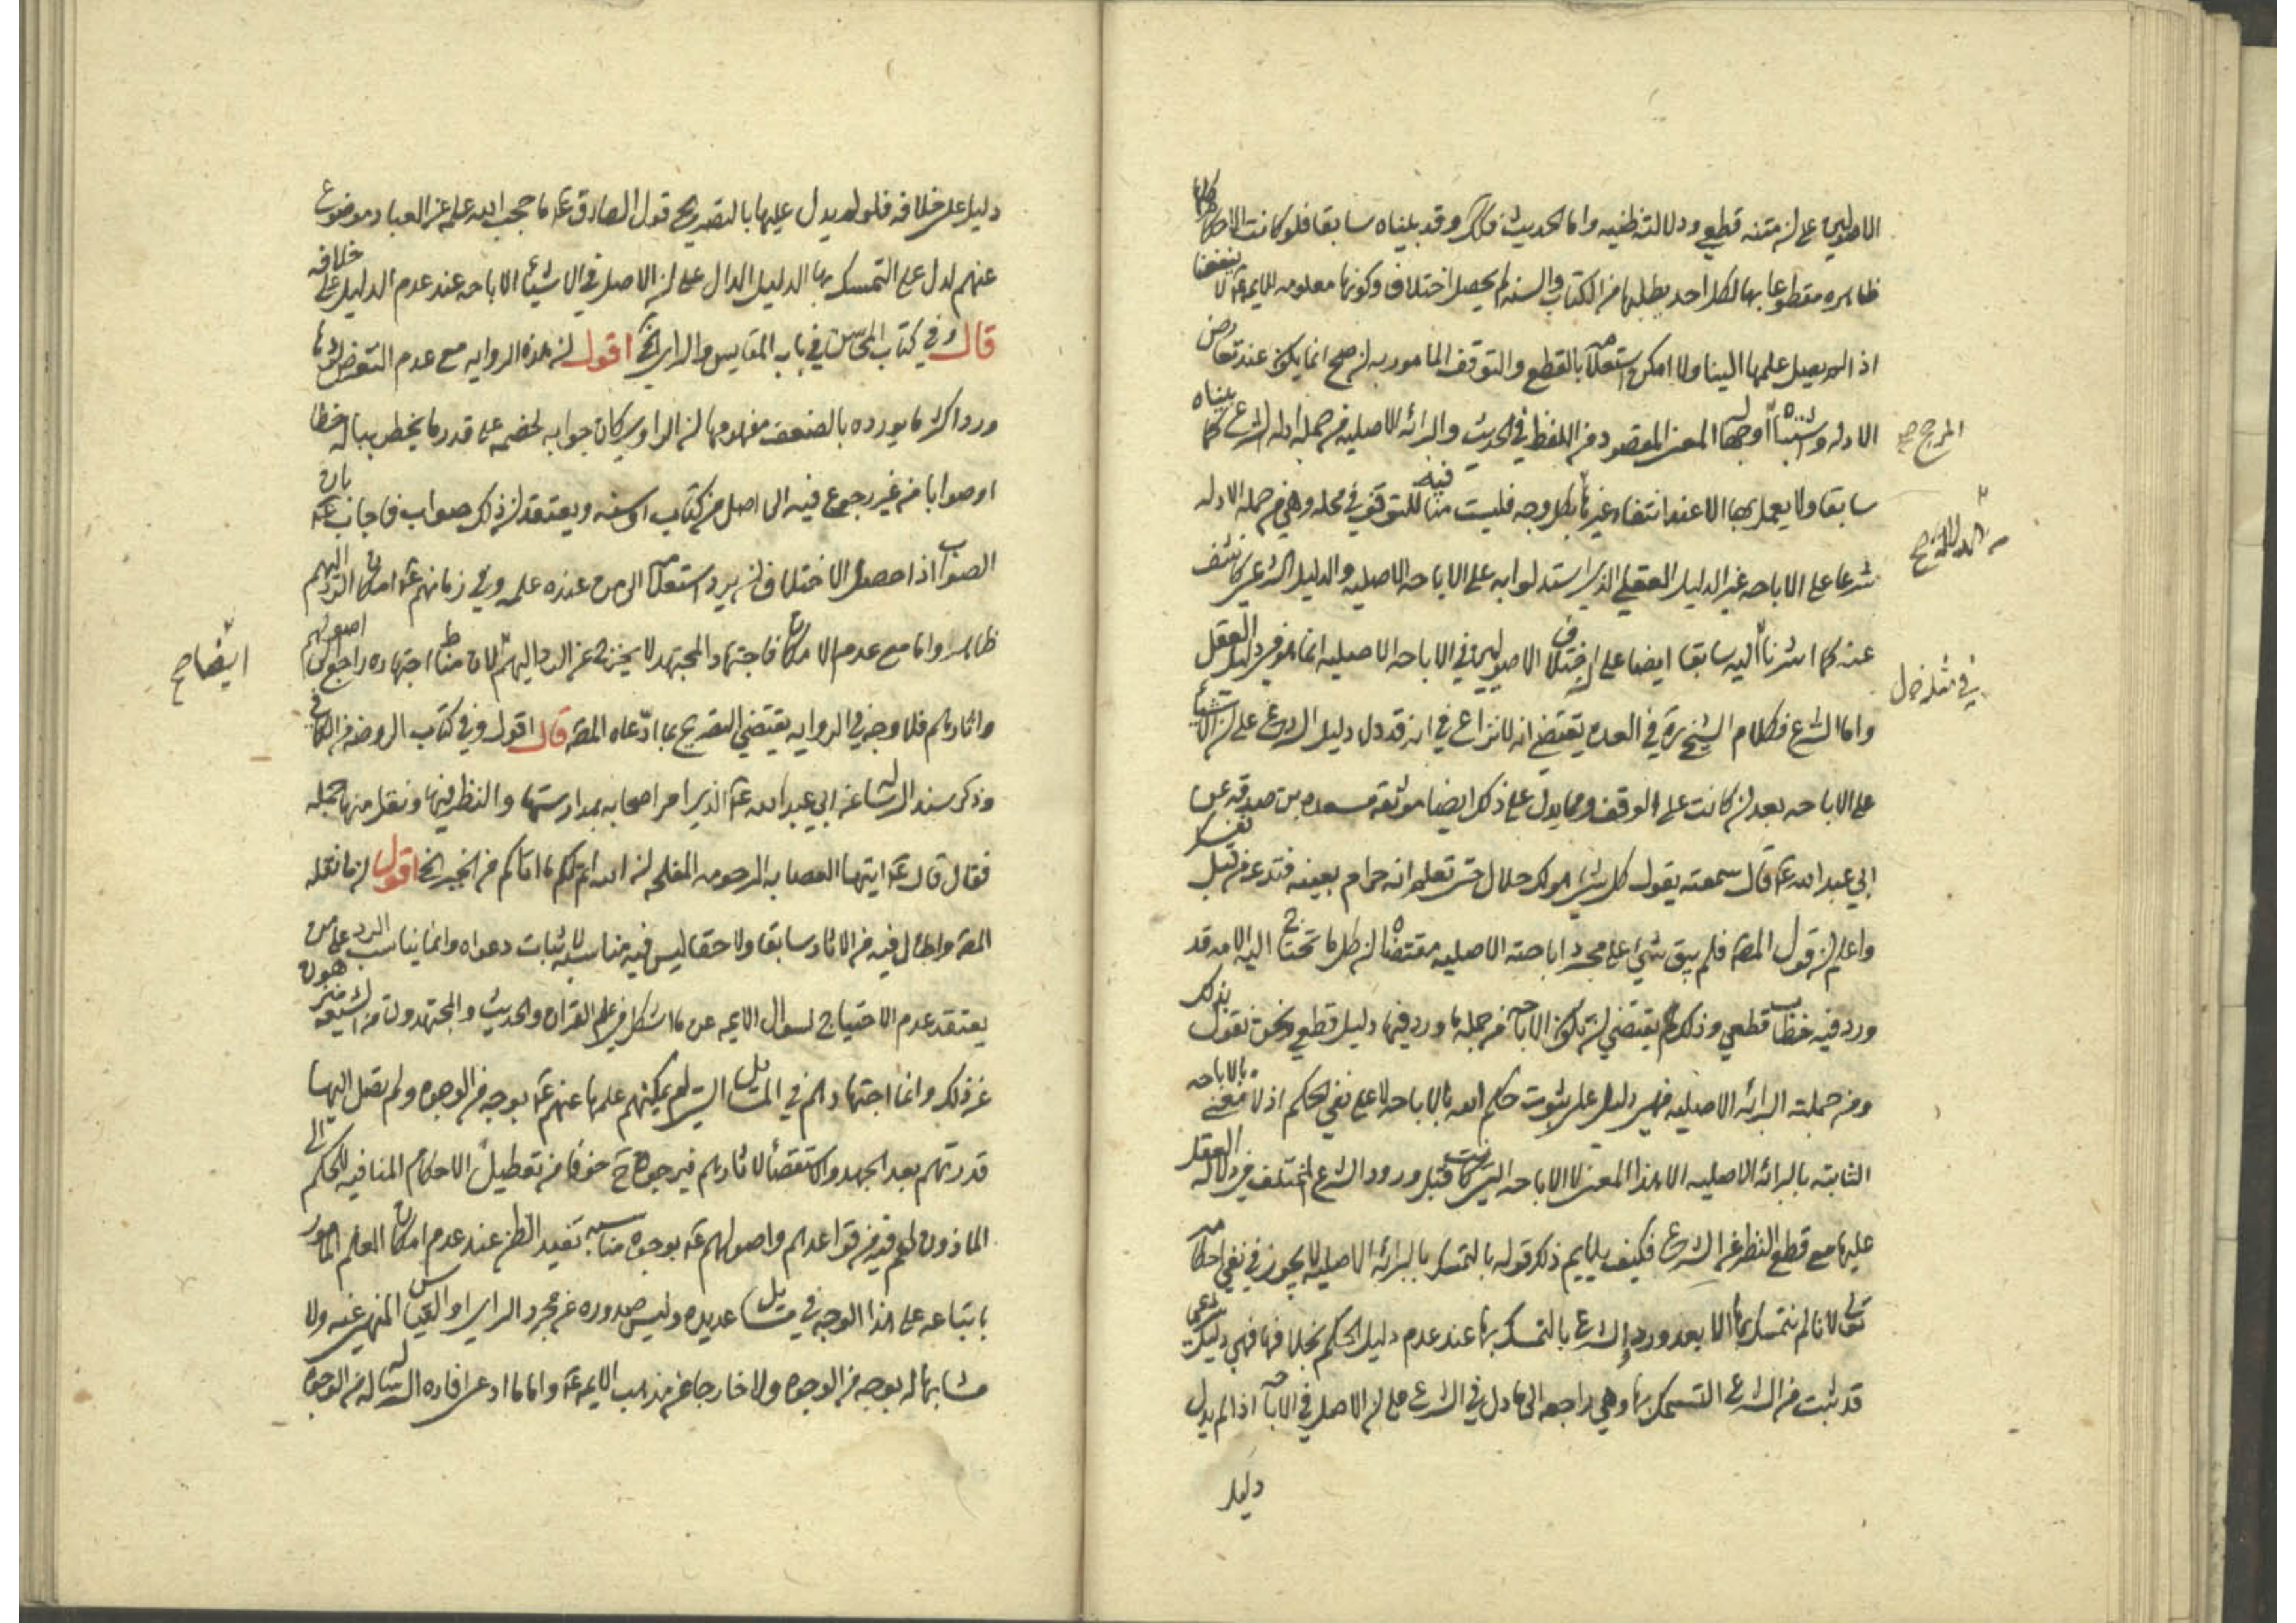 الاصوليين على ان متنه قطعي ودلالته ظنيه واما الحديث فلا وقد بيناه سابقا فلو كانت الاحكام كلها
ظاهره مقطوعا بها لكل احد يطلبها من الكتاب والسنه لم يحصل اختلاف وكونها معلومه للايمه ع لا ينفعنا
اذا لم يصل علمها الينا ولا امكن استعلامه بالقطع والتوقف المامور به ان صح انما يكون عند تعارض
الادله واشتباه اوجه المعنى المقصود من اللفظ في الحديث والبرائه الاصليه من جمله ادله الشرع كما بيناه
سابقا ولا يعمل بها الا عند انتفاء غيرها بكل وجه فليست منافيه للتوقف في محله وهي من جمله الادله
شرعا على الاباحه غير الدليل العقلي الذي استدلوا به على الاباحه الاصليه والدليل الشرعي كاشف
عنه كما اشرنا اليه سابقا ايضا على ان اختلاف الاصوليين في الاباحه الاصليه انما هو في دليل العقل
واما الشرع فكلام الشيخ ره في العده يقتضي انه لا نزاع في انه قد دل دليل الشرع على ان الاشياء
على الاباحه بعد ان كانت على الوقف ومما يدل على ذلك ايضا موثقه مسعده بن صدقه عن
ابي عبد الله ع قال سمعته يقول كل شيء هو لك حلال حتى تعلم انه حرام بعينه فتدعه من قبل نفسك
واعلم ان قول المص فلم يبق شيء على مجرد اباحته الاصليه مقتضاه ان كل ما تحتاج اليه الامه قد
ورد فيه خطاب قطعي وذلك يقتضي ان تكون الاباحه من جمله ما ورد فيها دليل قطعي ونحن نقول بذلك
ومن جملته البرائه الاصليه فهي دليل على ثبوت حكم الله بالاباحه لا على نفي الحكم اذ لا معنى بالاباحه
الثابته بالبرائه الاصليه الا هذا المعنى لا الاباحه التي كانت قبل ورود الشرع المختلف في دلاله العقل
عليها مع قطع النظر عن الشرع فكيف يلايم ذلك قوله بالتمسك بالبرائه الاصليه لا يجوز في نفي احكامه
تعالى لانا لم نتمسك بها الا بعد ورود الشرع بالتمسك بها عند عدم دليل الحكم بخلافها فهي دليل شرعي
قد ثبت من الشرع التمسك بها وهي راجعه الى ما دل في الشرع على ان الاصل في الاباحه اذا لم يدل
دليل
المرجح
في مثله
دليل على خلافه فلو لم يدل عليها بالتصريح قول الصادق ع ما حجب الله علمه عن العباد موضوع
عنهم لدل على التمسك بها الدليل الدال على ان الاصل في الاشياء الاباحه عند عدم الدليل على خلافه
قال وفي كتاب المحاسن في باب المقاييس والراي الخ اقول ان هذه الروايه مع عدم التعرض لردها
ورد اكثر ما يورده بالضعف مفهومها ان الراوي كان جوابه لخصمه على قدر ما يخطر بباله خطا
او صوابا من غير رجوع فيه الى اصل من كتاب او سنه ويعتقد ان ذلك صواب فاجاب ع بان
الصواب اذا حصل الاختلاف ان يرد استعلامه الى من عنده علمه وفي زمانهم ع امكان الرد اليهم
ظاهر واما مع عدم الامكان فاجتهاد المجتهد لا يخرج عن الرد اليهم لان مناط اجتهاده راجع الى اصولهم
واثارهم فلا وجه في الروايه يقتضي التصريح بما ادعاه المص قال اقول وفي كتاب الروضه من الكافي
وذكر سند الرساله عن ابي عبد الله ع الذي امر اصحابه بمدارستها والنظر فيها ونقل منها جمله
فقال قال ع ايتها العصابه المرحومه المفلحه ان الله اتم لكم ما اتاكم من الخير الخ اقول ان ما نقله
المص واطال فيه من الاثار سابقا ولاحقا ليس فيه مناسبه لاثبات دعواه وانما يناسب الرد على من
يعتقد عدم الاحتياج لسوال الايمه عن ما اشكل من علم القران والحديث والمجتهدون من الشيعه منزهون
عن ذلك وانما اجتهادهم في المسايل التي لم يمكنهم علمها عنهم ع بوجه من الوجوه ولم تصل اليها
قدرتهم بعد الجهد والاستقصاء لاثارهم فيرجون ح خوفا من تعطيل الاحكام المنافيه للحكم الى
الماذون لهم فيه من قواعدهم واصولهم ع بوجوه مناسبه تفيد الظن عند عدم امكان العلم المامور
باتباعه على هذا الوجه في مسايل عديده وليس صدوره عن مجرد الراي او القياس المنهي عنه ولا
مشابها له بوجه من الوجوه ولا خارجا عن مذهب الايمه ع واما ما ادعى افاده الرساله من الوجوه
ايضا صح